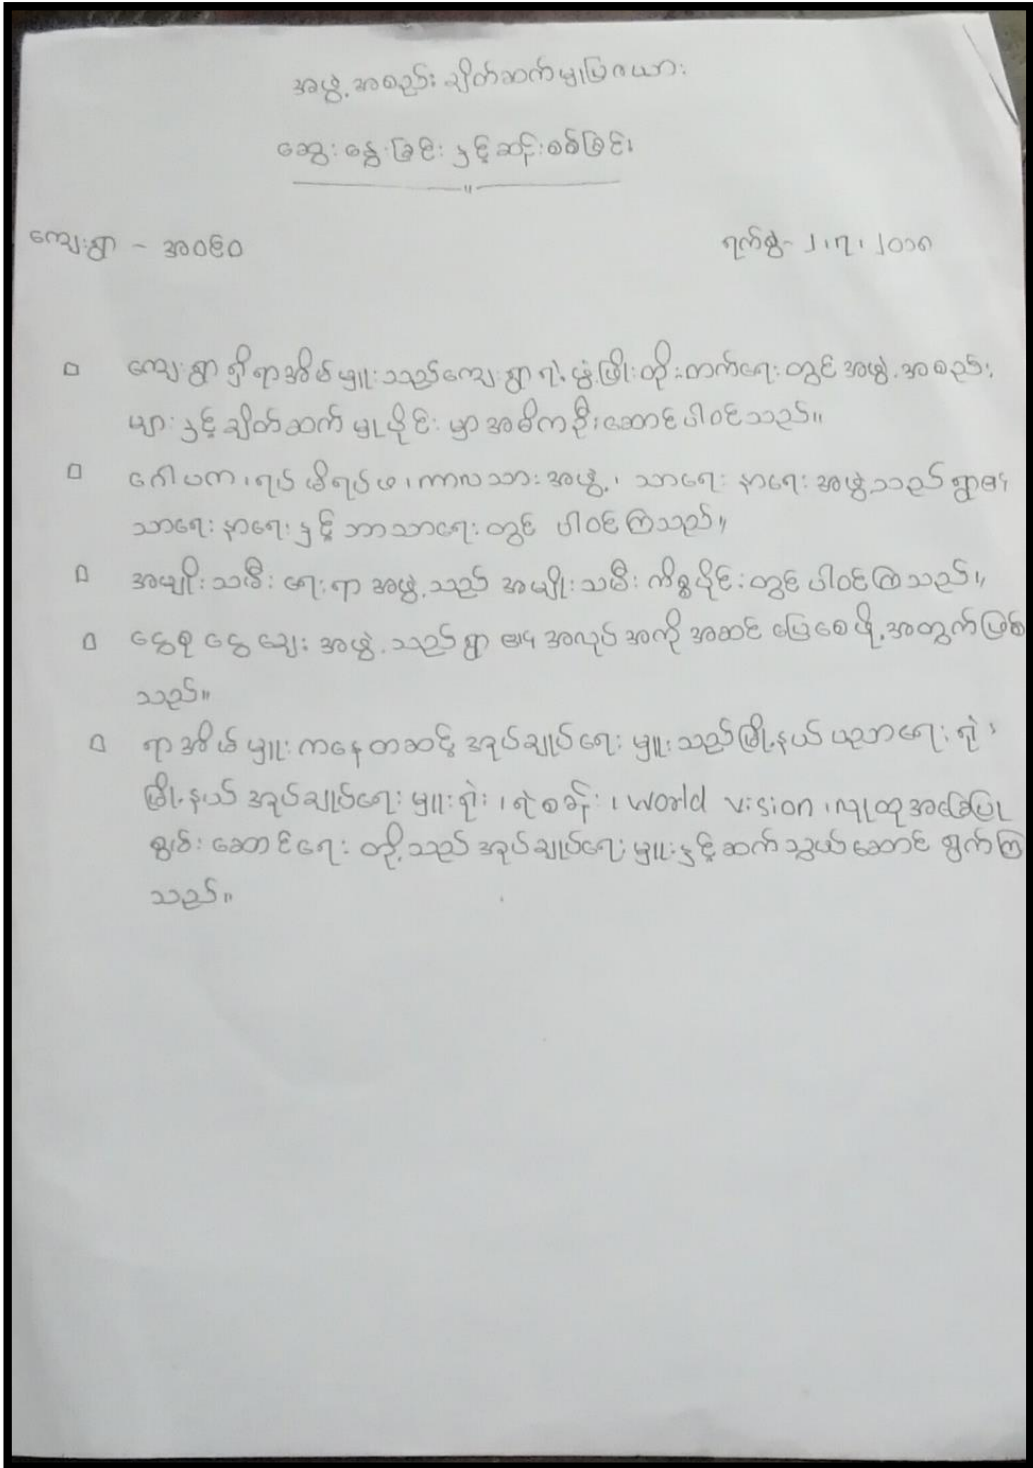 အဖွဲ့အစည်းချိတ်ဆက်မှုပြဇယား
ဆွေးနွေးခြင်းနှင့်ဆန်းစစ်ခြင်း
ကျေးရွာ -
ရက်စွဲ- ၂၊၇၊၂၀၁၈
ကျေးရွာရှိရာအိမ်မှူးသည်ကျေးရွာရဲ့ဖွံ့ဖြိုးတိုးတက်ရေးတွင်အဖွဲ့အစည်း
များနှင့်ချိတ်ဆက်မှုပိုင်းမှာအဓိကဦးဆောင်ပါဝင်သည်။
ဂေါပက၊ရပ်မိရပ်ဖ၊ကာလသားအဖွဲ့၊ သာရေးနာရေးအဖွဲ့သည်ရွာ၏
သာရေးနာရေးနှင့်ဘာသာရေးတွင် ပါဝင်ကြသည်။
အမျိုးသမီးရေးရာအဖွဲ့သည် အမျိုးသမီးကိစ္စပိုင်းတွင်ပါဝင်ကြသည်။
ငွေစုငွေချေးအဖွဲ့သည်ရွာ၏အလုပ်အကိုအဆင်ပြေစေဖို့အတွက်ဖြစ်
သည်။
ရာအိမ်မှူးကနေတဆင့်အုပ်ချုပ်ရေးမှူးသည်မြို့နယ်ပညာရေးရုံး၊
မြို့နယ်အုပ်ချုပ်ရေးမှူးရုံး၊ရဲစခန်း၊World vision၊လူထုအခြေပြု
စွမ်းဆောင်ရေးတို့သည်အုပ်ချုပ်ရေးမှူးနှင့်ဆက်သွယ်ဆောင်ရွက်ကြ
သည်။